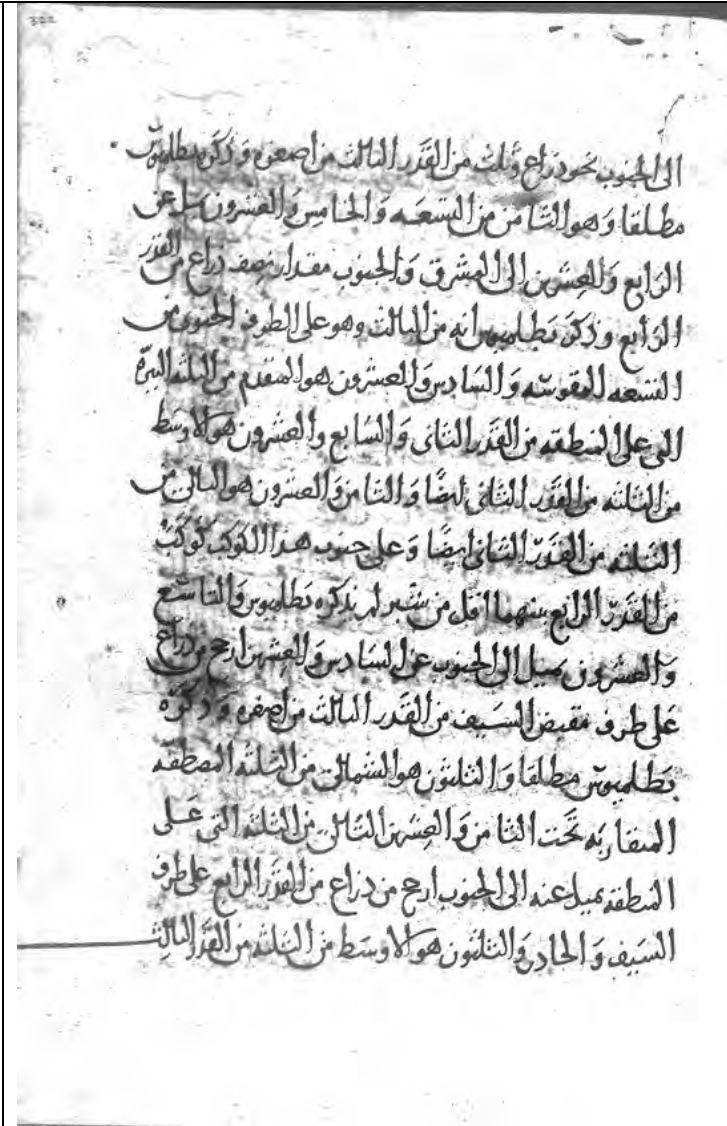 322
الى الجنوب نحو ذراع وثلث من القدر الثالث من اصغره وذكره بطلميوس
مطلقا وهو الثامن من التسعه والخامس والعشرون ميل عن
الرابع والعشرين الى المشرق والجنوب مقدار نصف ذراع من القدر
الرابع وذكر بطلميوس انه من الثالث وهو على الطرف الجنوبي من
التسعه المقوسه والسادس والعشرون هو المتقدم من الثلثه النيرة
التى على المنطقه من القدر الثانى والسابع والعشرون هو الاوسط
من الثلثه من القدر الثانى ايضًا والثامن والعشرون هو التالى من
الثلثه من القدر الثانى ايضًا وعلى جنوب هذا الكوكب كوكب
من القدر الرابع بينهما اقل من شبر لم يذكره بطلميوس والتاسع
والعشرون ميل الى الجنوب عن السادس والعشرين ارجح من ذراع
على طرف مقبض السيف من القدر الثالث من اصغره وذكره
بطلميوس مطلقا والثلثون هو الشمالى من الثلثه المصطفه
المتقاربه تحت الثامن والعشرين التالى من الثلثه التى على
المنطقه ميل عنه الى الجنوب ارجح من ذراع من القدر الرابع على طرف
السيف والحادى والثلثون هو الاوسط من الثلثه من القدر الثالث